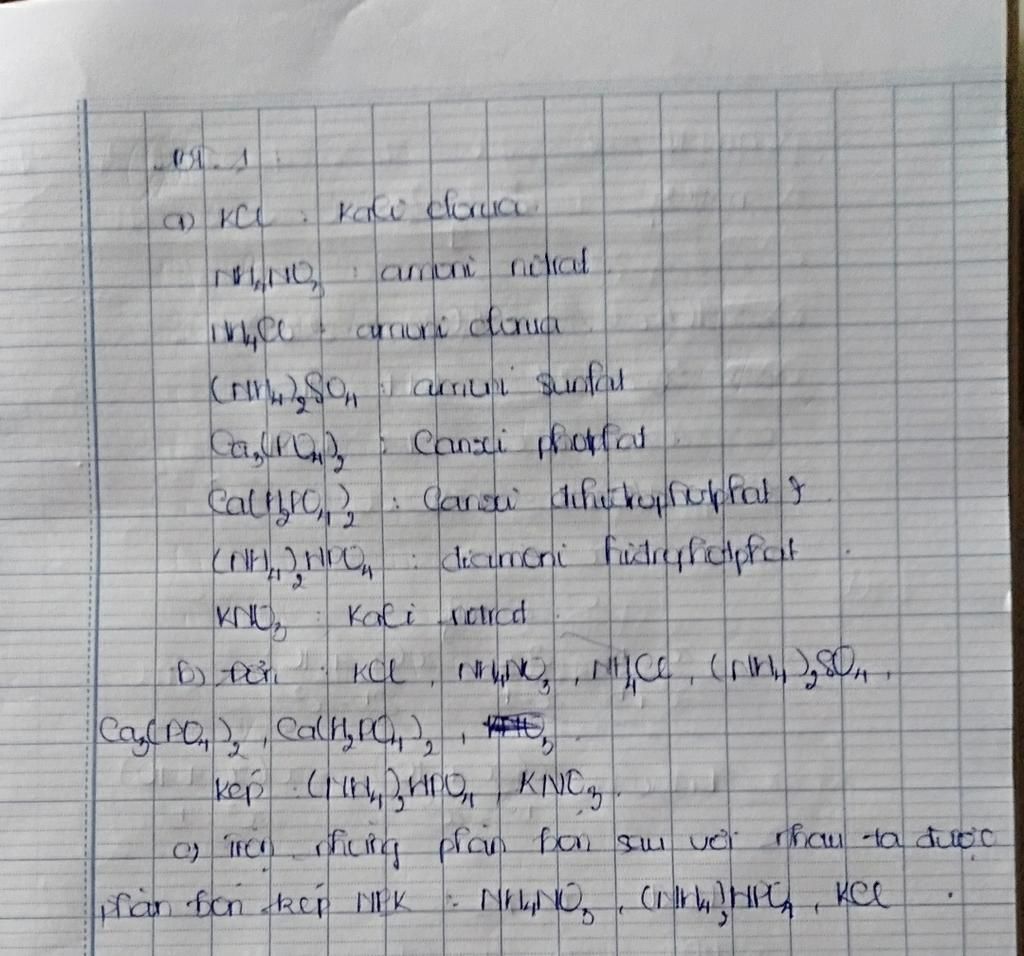 1 :
a) KCl : kali clorua
NH₄NO₃ : amoni nitrat
NH₄Cl : amoni clorua
(NH₄)₂SO₄ : amoni sunfat
Ca₃(PO₄)₂ : Canxi photphat
Ca(H₂PO₄)₂ : Canxi đihidrophotphat
(NH₄)₂HPO₄ : điamoni hidrophotphat
KNO₃ : Kali nitrat
b) Đơn : KCl, NH₄NO₃, NH₄Cl, (NH₄)₂SO₄,
Ca₃(PO₄)₂, Ca(H₂PO₄)₂,
kép : (NH₄)₂HPO₄, KNO₃.
c) trộn những phân bón sau với nhau ta được
phân bón kép NPK : NH₄NO₃, (NH₄)₂HPO₄, KCl.